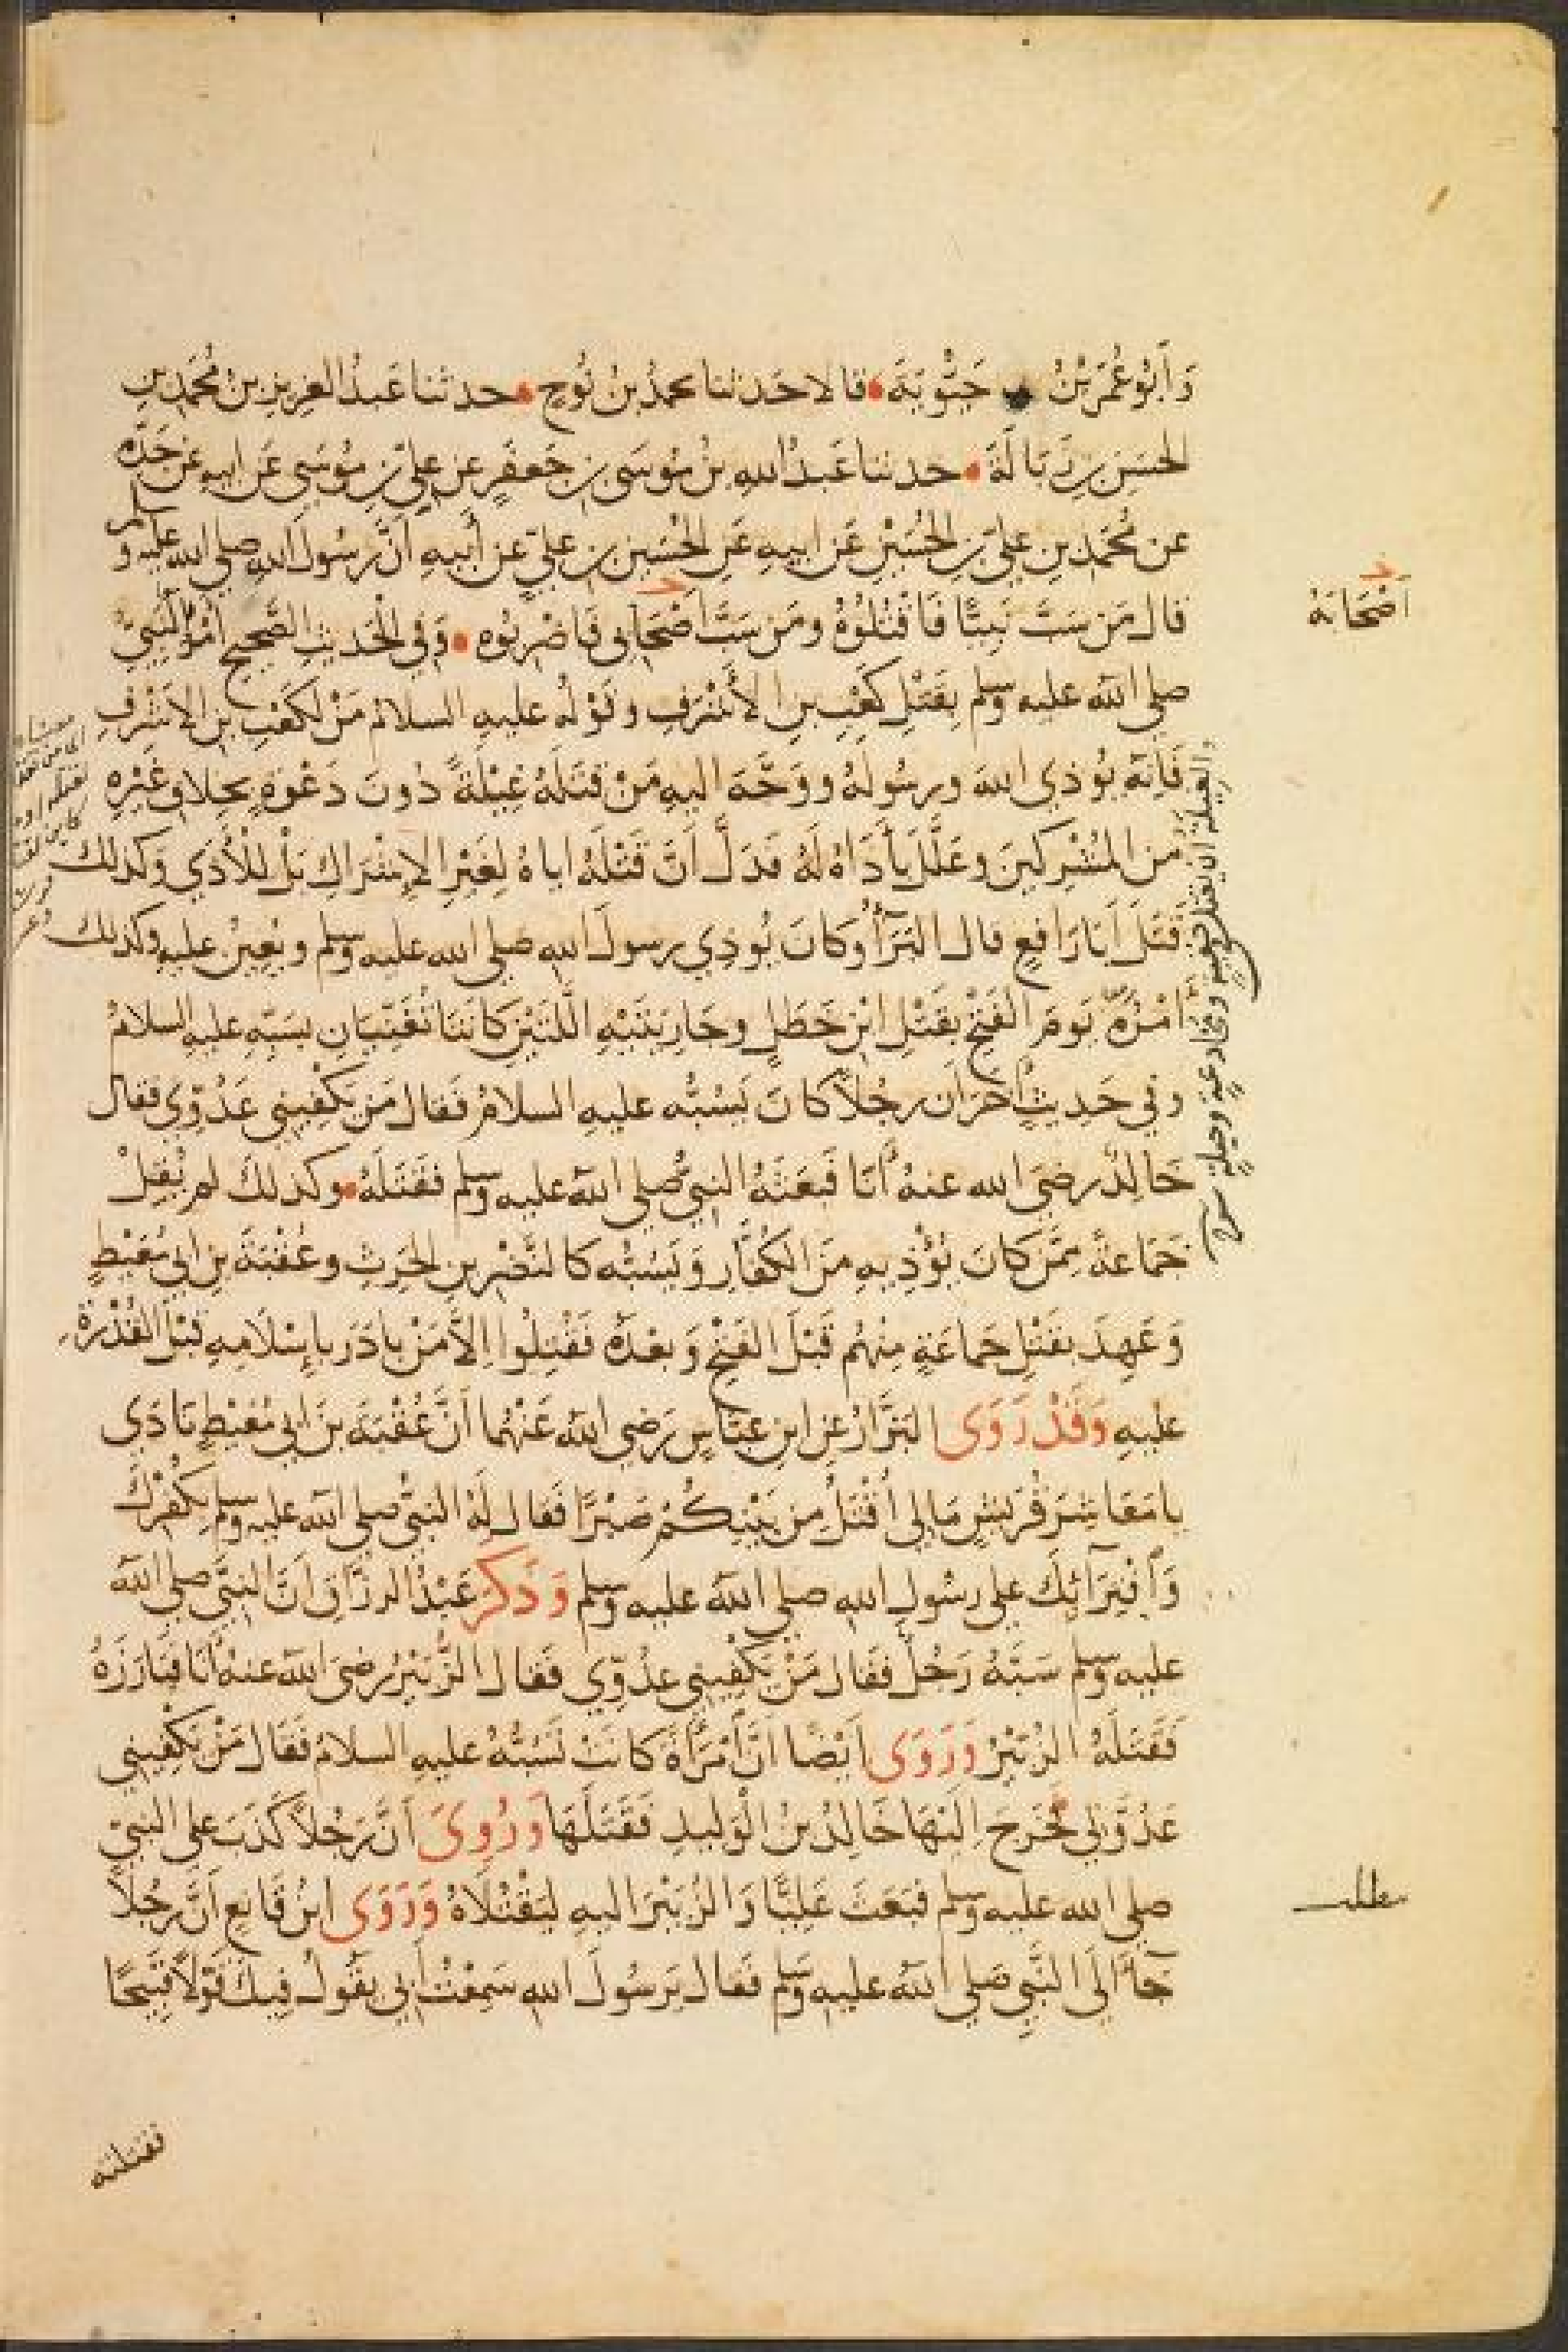 وَأَبُو عُمَرَ بْنُ حَيُّويَةَ قالا حَدثنا محمدُ بنُ نُوحٍ حدثنا عَبدُ العزيزِ بنُ مُحَمَدِ بنِ
الحسَنِ بنِ زَبَالَةَ حدثنا عَبدُ اللهِ بنُ مُوسَى بنِ جَعفَرٍ عن عليِّ بنِ مُوسَى عَن ابيهِ عن جَدِّه
عن مُحَمَّدِ بنِ عليِّ بنِ الحُسَيْنِ عَن ابيهِ عَنِ الحُسَينِ بنِ عليٍّ عن أبيهِ أنَّ رسُولَ اللهِ صلي الله عليه وسلم
قال مَن سَبَّ نَبِيًّا فَاقْتُلُوهُ ومَن سَبَّ اَصْحَابي فَاضْربُوه وَفي الحَديثِ الصَّحيحِ اَمْرُ النَّبيِّ
اَصْحَابَهُ
صلي الله عليه وسلم بِقَتْلِ كَعْبِ بنِ الأشْرَفِ وقَوْلُهُ عليهِ السلامُ مَنْ لكَعْبِ بنِ الاَشرَفِ
فَاِنَّه يُوذِي اللهَ ورسُولَهُ ووَجَّهَ اليهِ مَنْ قتَلَهُ غِيْلَةً دُونَ دَعْوَةٍ بخِلافِ غَيْرِهِ
مِن المُشْرِكينَ وعَلَّلَ بأَذَاهُ لَهُ فَدَلَّ أَنَّ قَتْلَهُ اياهُ لِغَيْرِ الاِشْرَاكِ بَلْ لِلْأَذَي وَكذلك
قَتَلَ اَبَا رَافعٍ قال البَرَآءُ وَكانَ يُوذِي رسولَ الله صلي الله عليه وسلم ويُعِينُ عليهِ وكذلك
اَمْرُهُ يَومَ الفَتْحِ بقَتْلِ ابْنِ خَطَلٍ وجَارِيَتَيْهِ اللَّتَيْنِ كَانَتَا تُغَنِّيَانِ بسَبِّهِ عليهِ السلامُ
وفي حَدِيثٍ آخَرَ اَن رجُلاً كانَ يَسُبُّه عليهِ السلامُ فَقال مَن يَكْفِيني عَدُوِّي فقال
خَالِدٌ رضيَ الله عنهُ أنَا فَبَعَثَهُ النبيُّ صلي الله عليه وسلم فقَتَلَهُ وكذلكَ لم يُقِلْ
جَمَاعةً مِمَّن كانَ يُؤْذِيهِ مِنَ الكُفَّارِ وَيَسُبُّه كالنَّضْرِ بنِ الحَرثِ وعُقْبَةَ بنِ ابي مُعَيْطٍ
وَعَهِدَ بقَتْلِ جَماعَةٍ مِنهُم قَبْلَ الفَتْحِ وَبعْدَهُ فَقُتِلُوا اِلاَّ مَنْ بادَرَ بإسْلَامِهِ قَبْلَ القُدْرَةِ
عليهِ وَقَدْ رَوَى البَزَّارُ عنِ ابنِ عبَّاسٍ رَضي الله عَنْهُما اَنَّ عُقْبَةَ بنَ ابي مُعَيْطٍ نادَى
يا مَعَاشِرَ قُرَيْشٍ مَا لي أُقْتَلُ مِن بَيْنِكُمْ صَبْرًا فَقال لَهُ النبيُّ صلي الله عليه وسلم بِكُفْرِكَ
وَافْتِرَآئِكَ على رسُولِ اللهِ صلي الله عليه وسلم وَذَكَرَ عَبْدُ الرزَّاقِ اَنَّ النبيَّ صلي الله
عليه وسلم سَبَّهُ رَجُلٌ فقال مَنْ يَكْفِيني عدُوِّي فقال الزُّبَيْرُ رضيَ الله عنهُ أنَا فبَارَزَهُ
فَقَتَلَهُ الزُّبَيْرُ وَرَوَى اَيْضًا اَنَّ امْرَأَةً كانَتْ تَسُبُّهُ عليهِ السلامُ فَقَال مَنْ يَكْفِيني
عدُوَّتي فَخَرجَ اِلَيْهَا خَالِدُ بنُ الْوَليدِ فَقَتَلَهَا وَرُوِىَ اَنَّ رَجُلاً كَذَبَ على النبيِّ
صلي الله عليه وسلم فبَعَثَ عَلِيًّا وَالزُّبَيْرَ اليهِ لِيَقْتُلَاهُ وَرَوَى ابنُ قَانِعٍ اَنَّ رجُلاً
مطلب
جَآءَ الَى النَّبيِ صَلي الله عليهِ وسَلم فَقال يَرسُولَ اللهِ سَمِعْتُ أبي يقُولُ فيكَ قَوْلاً قَبيحًا
فقتلته
الغيلة ان يقتل في خفية ومخادعةٍ وحيلةٍ